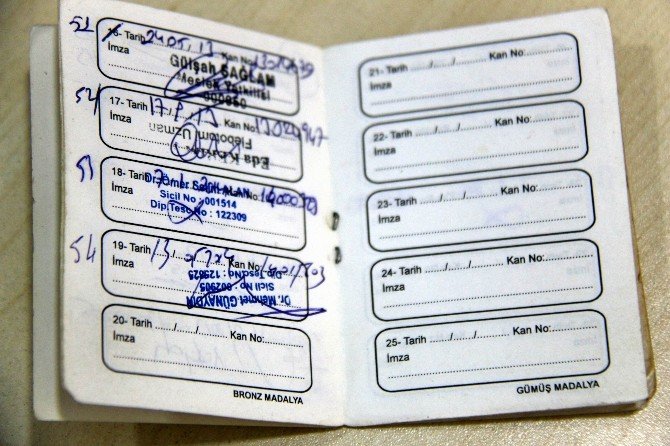 52
16- Tarih 24.05.13 Kan No:
İmza
Gülşah SAĞLAM
Meslek Yetkilisi
52
17- Tarih 17 Kan No:
İmza
Uzman
Eda
51
18- Tarih Kan No:
İmza
Dr. Ömer
Sicil No : 001514
Dip.Tesc.No : 122309
54
19- Tarih 13 Kan No:
İmza
Dip.Tesc.No : 125625
Sicil No : 002905
Dr. Mehmet GÜNAYDIN
20- Tarih ....../....../...... Kan No:
İmza
BRONZ MADALYA
21- Tarih ....../....../...... Kan No:
İmza
22- Tarih ....../....../...... Kan No:
İmza
23- Tarih ....../....../...... Kan No:
İmza
24- Tarih ....../....../...... Kan No:
İmza
25- Tarih ....../....../...... Kan No:
İmza
GÜMÜŞ MADALYA